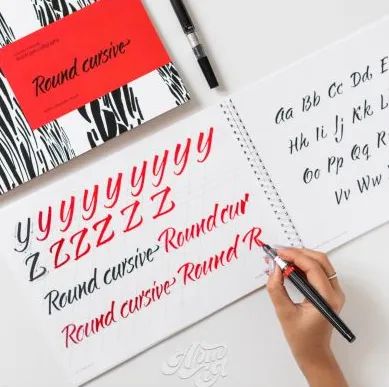 Round cursive
y y y y y y y y y
Z Z Z Z Z Z
Round cursive Round cur
Round cursive Round R
Aa Bb Cc Dd E
Hh Ii Jj Kk
Oo Pp Qq
Vv Ww